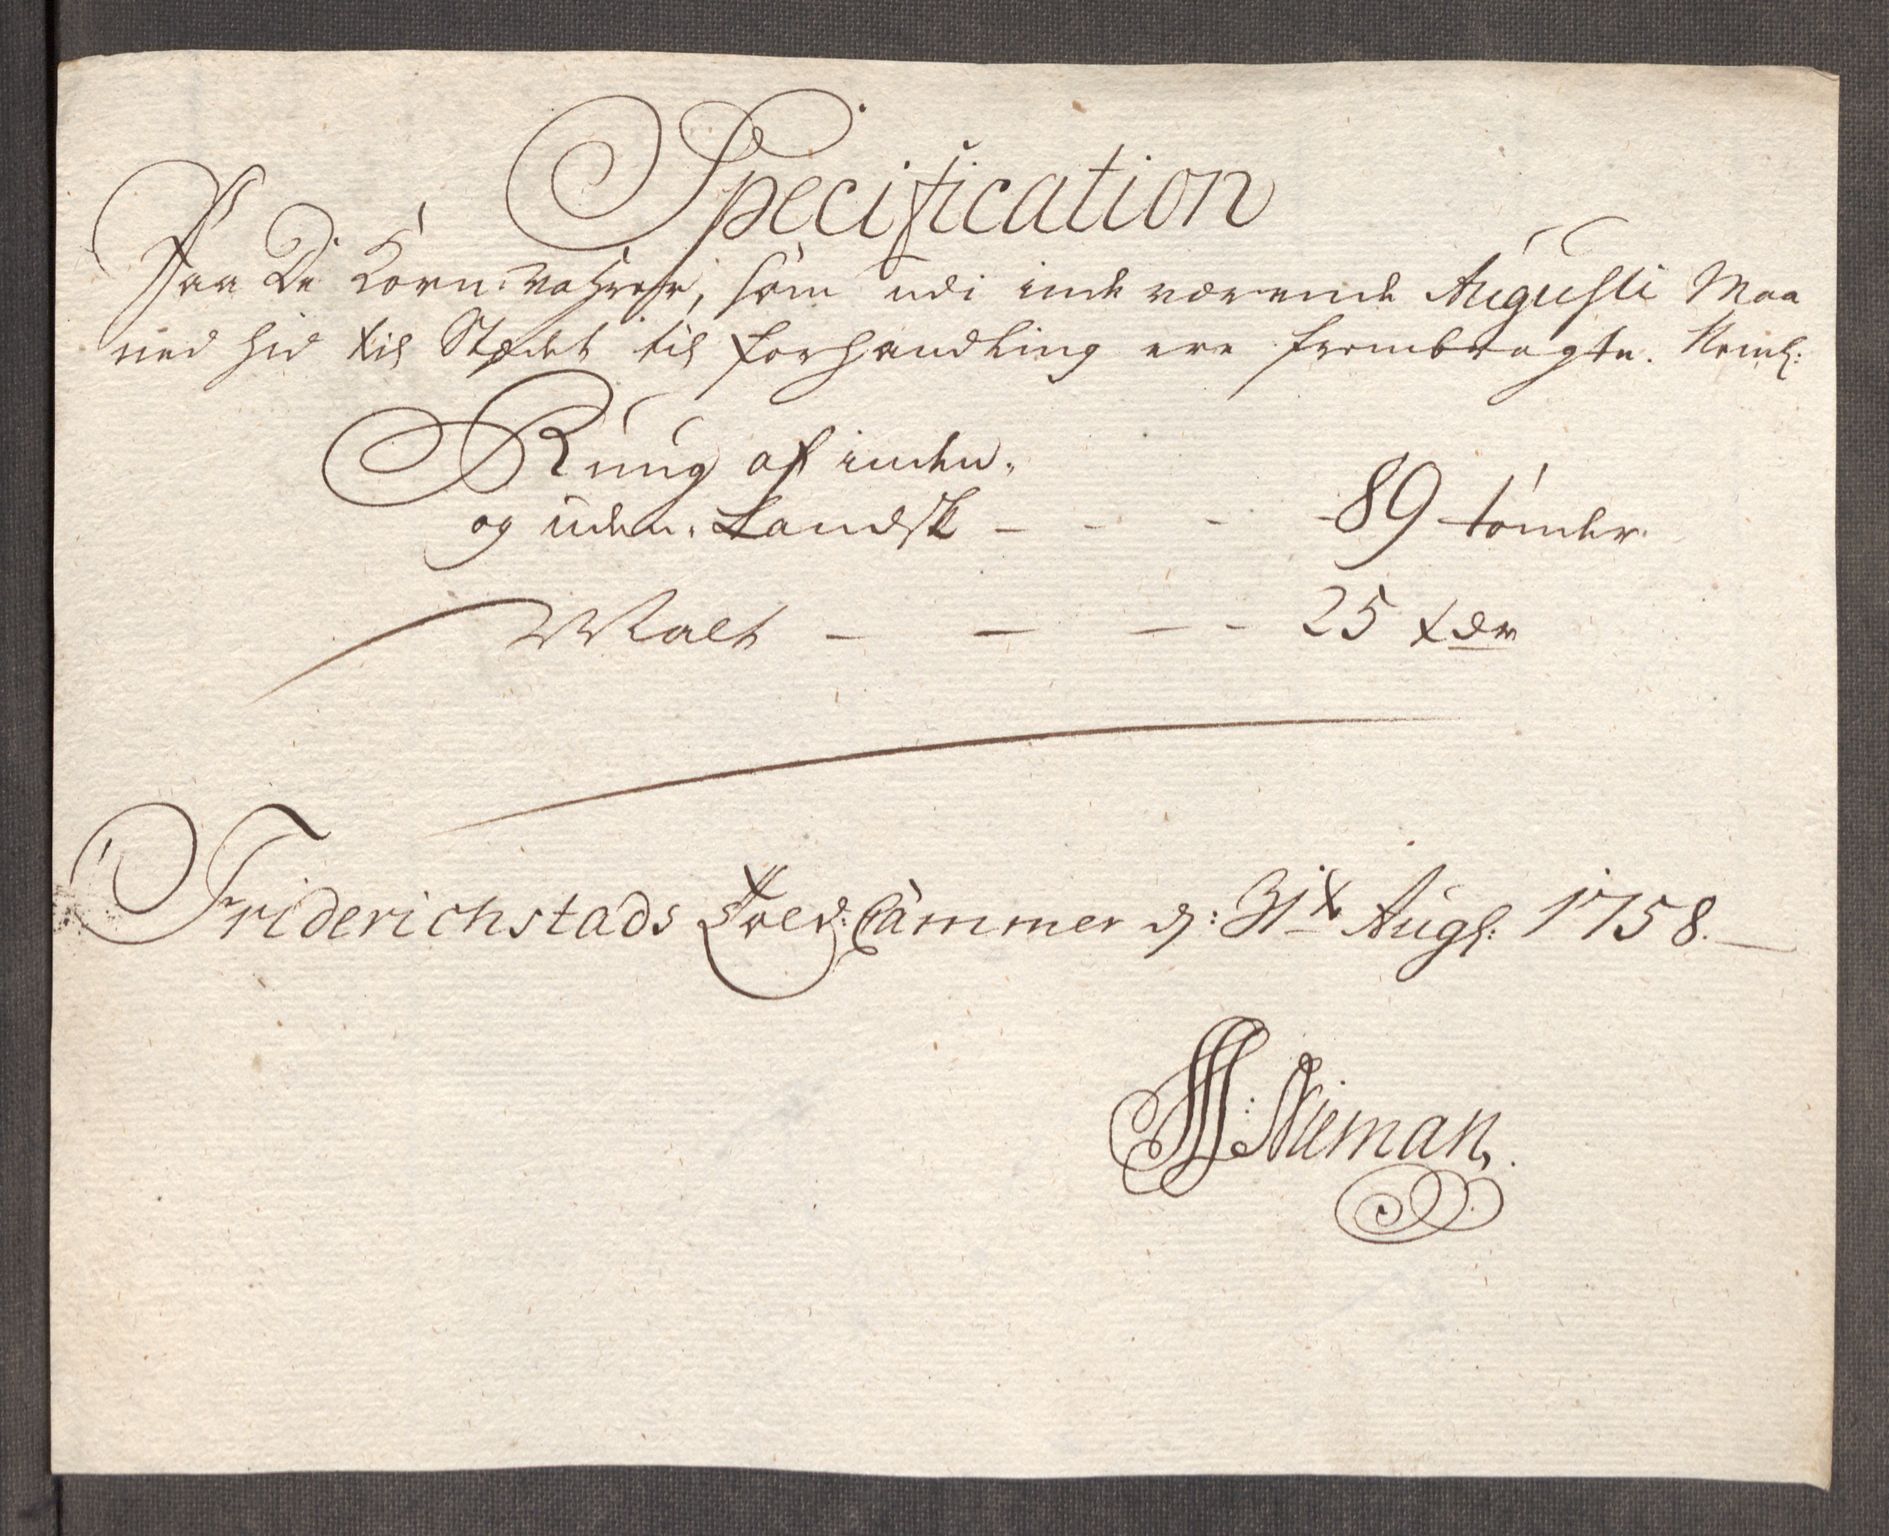 Specification
Paa De Korn-Vahrer, som udi inde værende Augusti Maa
ned hid til Stædet til forhandling ere frembragte. Neml:
Ruug af inden-
og uden-Landsk - - - - 89 tønder.
Malt - - - - 25 tdr
Friderichstads Told-Cammer d: 31t Augs: 1758. -
Nieman,